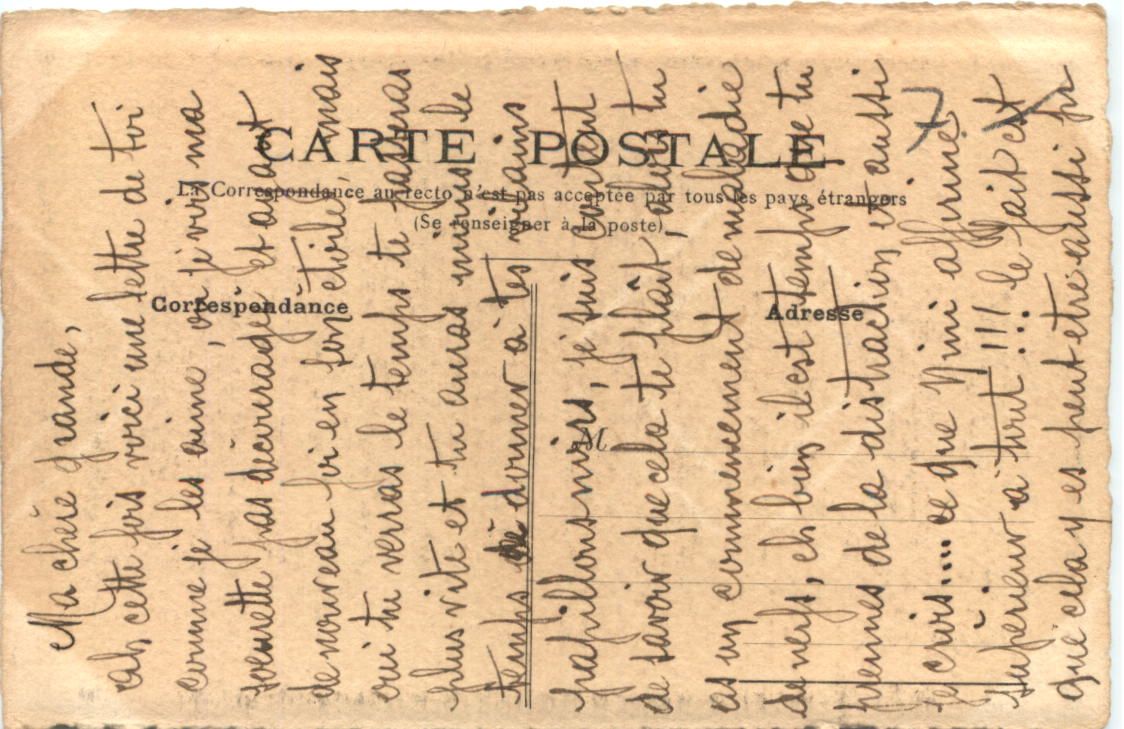 CARTE POSTALE
La Correspondance au recto n'est pas acceptée par tous les pays étrangers
(Se renseigner à la poste)
Correspondance
Adresse
M
7
Ma chère grande,
ah, cette fois voici une lettre de toi
comme je les aime, où je vois ma
soeurette pas découragée et ayant
de nouveau foi en son étoile, mais
oui tu verras le temps te
plus vite et tu auras moins le
temps de donner à tes vilains
papillons noirs, je suis content
de savoir que cela te plaît, ah tu
as un commencement de maladie
de nerfs, eh bien il est temps que tu
prennes de la distraction et aussi
je crois.... ce que Nini affirme
supérieur à tout!!! le fait est
que cela y es peut etre aussi pr